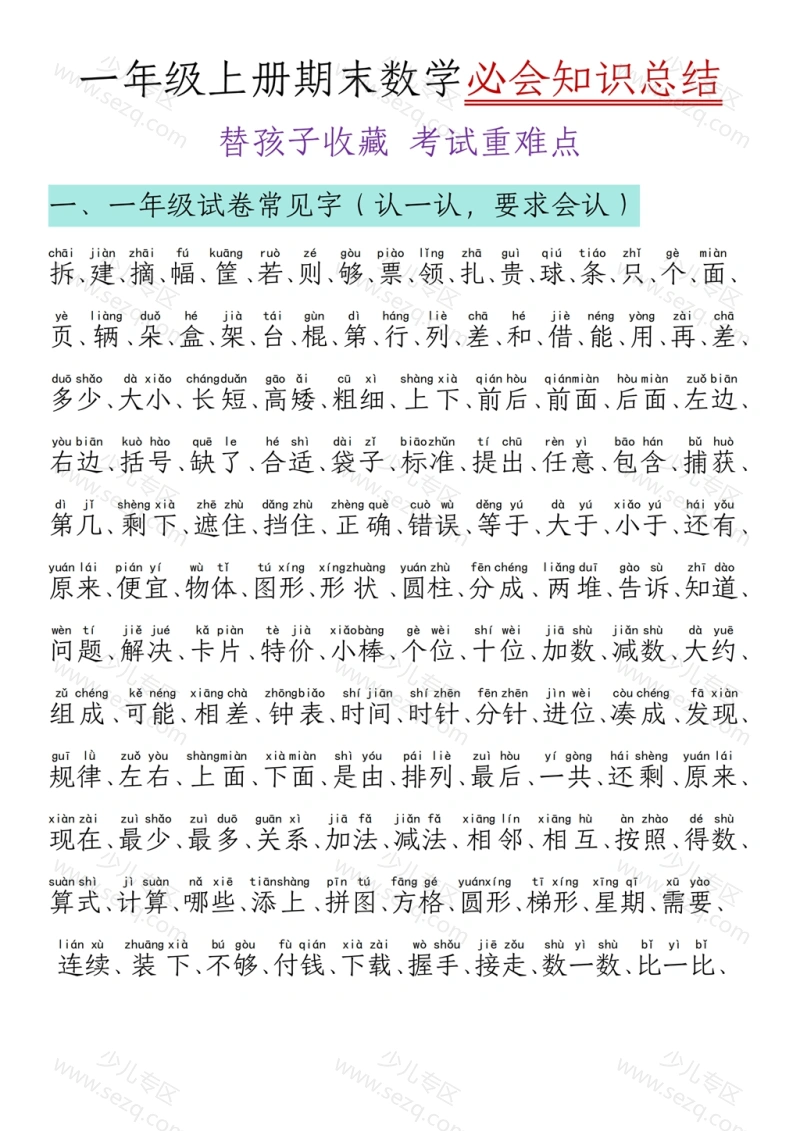 一年级上册期末数学必会知识总结
替孩子收藏 考试重难点
一、一年级试卷常见字（认一认，要求会认）
chāi jiàn zhāi fú kuāng ruò zé gòu piào lǐng zhā guì qiú tiáo zhǐ gè miàn
拆、建、摘、幅、筐、若、则、够、票、领、扎、贵、球、条、只、个、面、
yè liàng duǒ hé jià tái gùn dì háng liè chā hé jiè néng yòng zài chā
页、辆、朵、盒、架、台、棍、第、行、列、差、和、借、能、用、再、差、
duō shǎo dà xiǎo chángduǎn gāo ǎi cū xì shàng xià qián hòu qiánmiàn hòu miàn zuǒ biān
多少、大小、长短、高矮、粗细、上下、前后、前面、后面、左边、
yòu biān kuò hào quē le hé shì dài zǐ biāozhǔn tí chū rèn yì bāo hán bǔ huò
右边、括号、缺了、合适、袋子、标准、提出、任意、包含、捕获、
dì jǐ shèng xià zhē zhù dǎng zhù zhèng què cuò wù děng yú dà yú xiǎo yú hái yǒu
第几、剩下、遮住、挡住、正确、错误、等于、大于、小于、还有、
yuán lái pián yí wù tǐ tú xíng xíngzhuàng yuán zhù fēn chéng liǎng duī gào sù zhī dào
原来、便宜、物体、图形、形状、圆柱、分成、两堆、告诉、知道、
wèn tí jiě jué kǎ piàn tè jià xiǎobàng gè wèi shí wèi jiā shù jiǎn shù dà yuē
问题、解决、卡片、特价、小棒、个位、十位、加数、减数、大约、
zǔ chéng kě néng xiāng chà zhōngbiǎo shí jiān shí zhēn fēn zhēn jìn wèi còu chéng fā xiàn
组成、可能、相差、钟表、时间、时针、分针、进位、凑成、发现、
guī lǜ zuǒ yòu shàngmiàn xià miàn shì yóu pái liè zuì hòu yí gòng hái shèng yuán lái
规律、左右、上面、下面、是由、排列、最后、一共、还剩、原来、
xiàn zài zuì shǎo zuì duō guān xì jiā fǎ jiǎn fǎ xiāng lín xiāng hù àn zhào dé shù
现在、最少、最多、关系、加法、减法、相邻、相互、按照、得数、
suàn shì jì suàn nǎ xiē tiānshàng pīn tú fāng gé yuánxíng tī xíng xīng qī xū yào
算式、计算、哪些、添上、拼图、方格、圆形、梯形、星期、需要、
lián xù zhuāng xià bú gòu fù qián xià zài wò shǒu jiē zǒu shù yì shù bǐ yì bǐ
连续、装下、不够、付钱、下载、握手、接走、数一数、比一比、
少儿专区
www.sezq.com